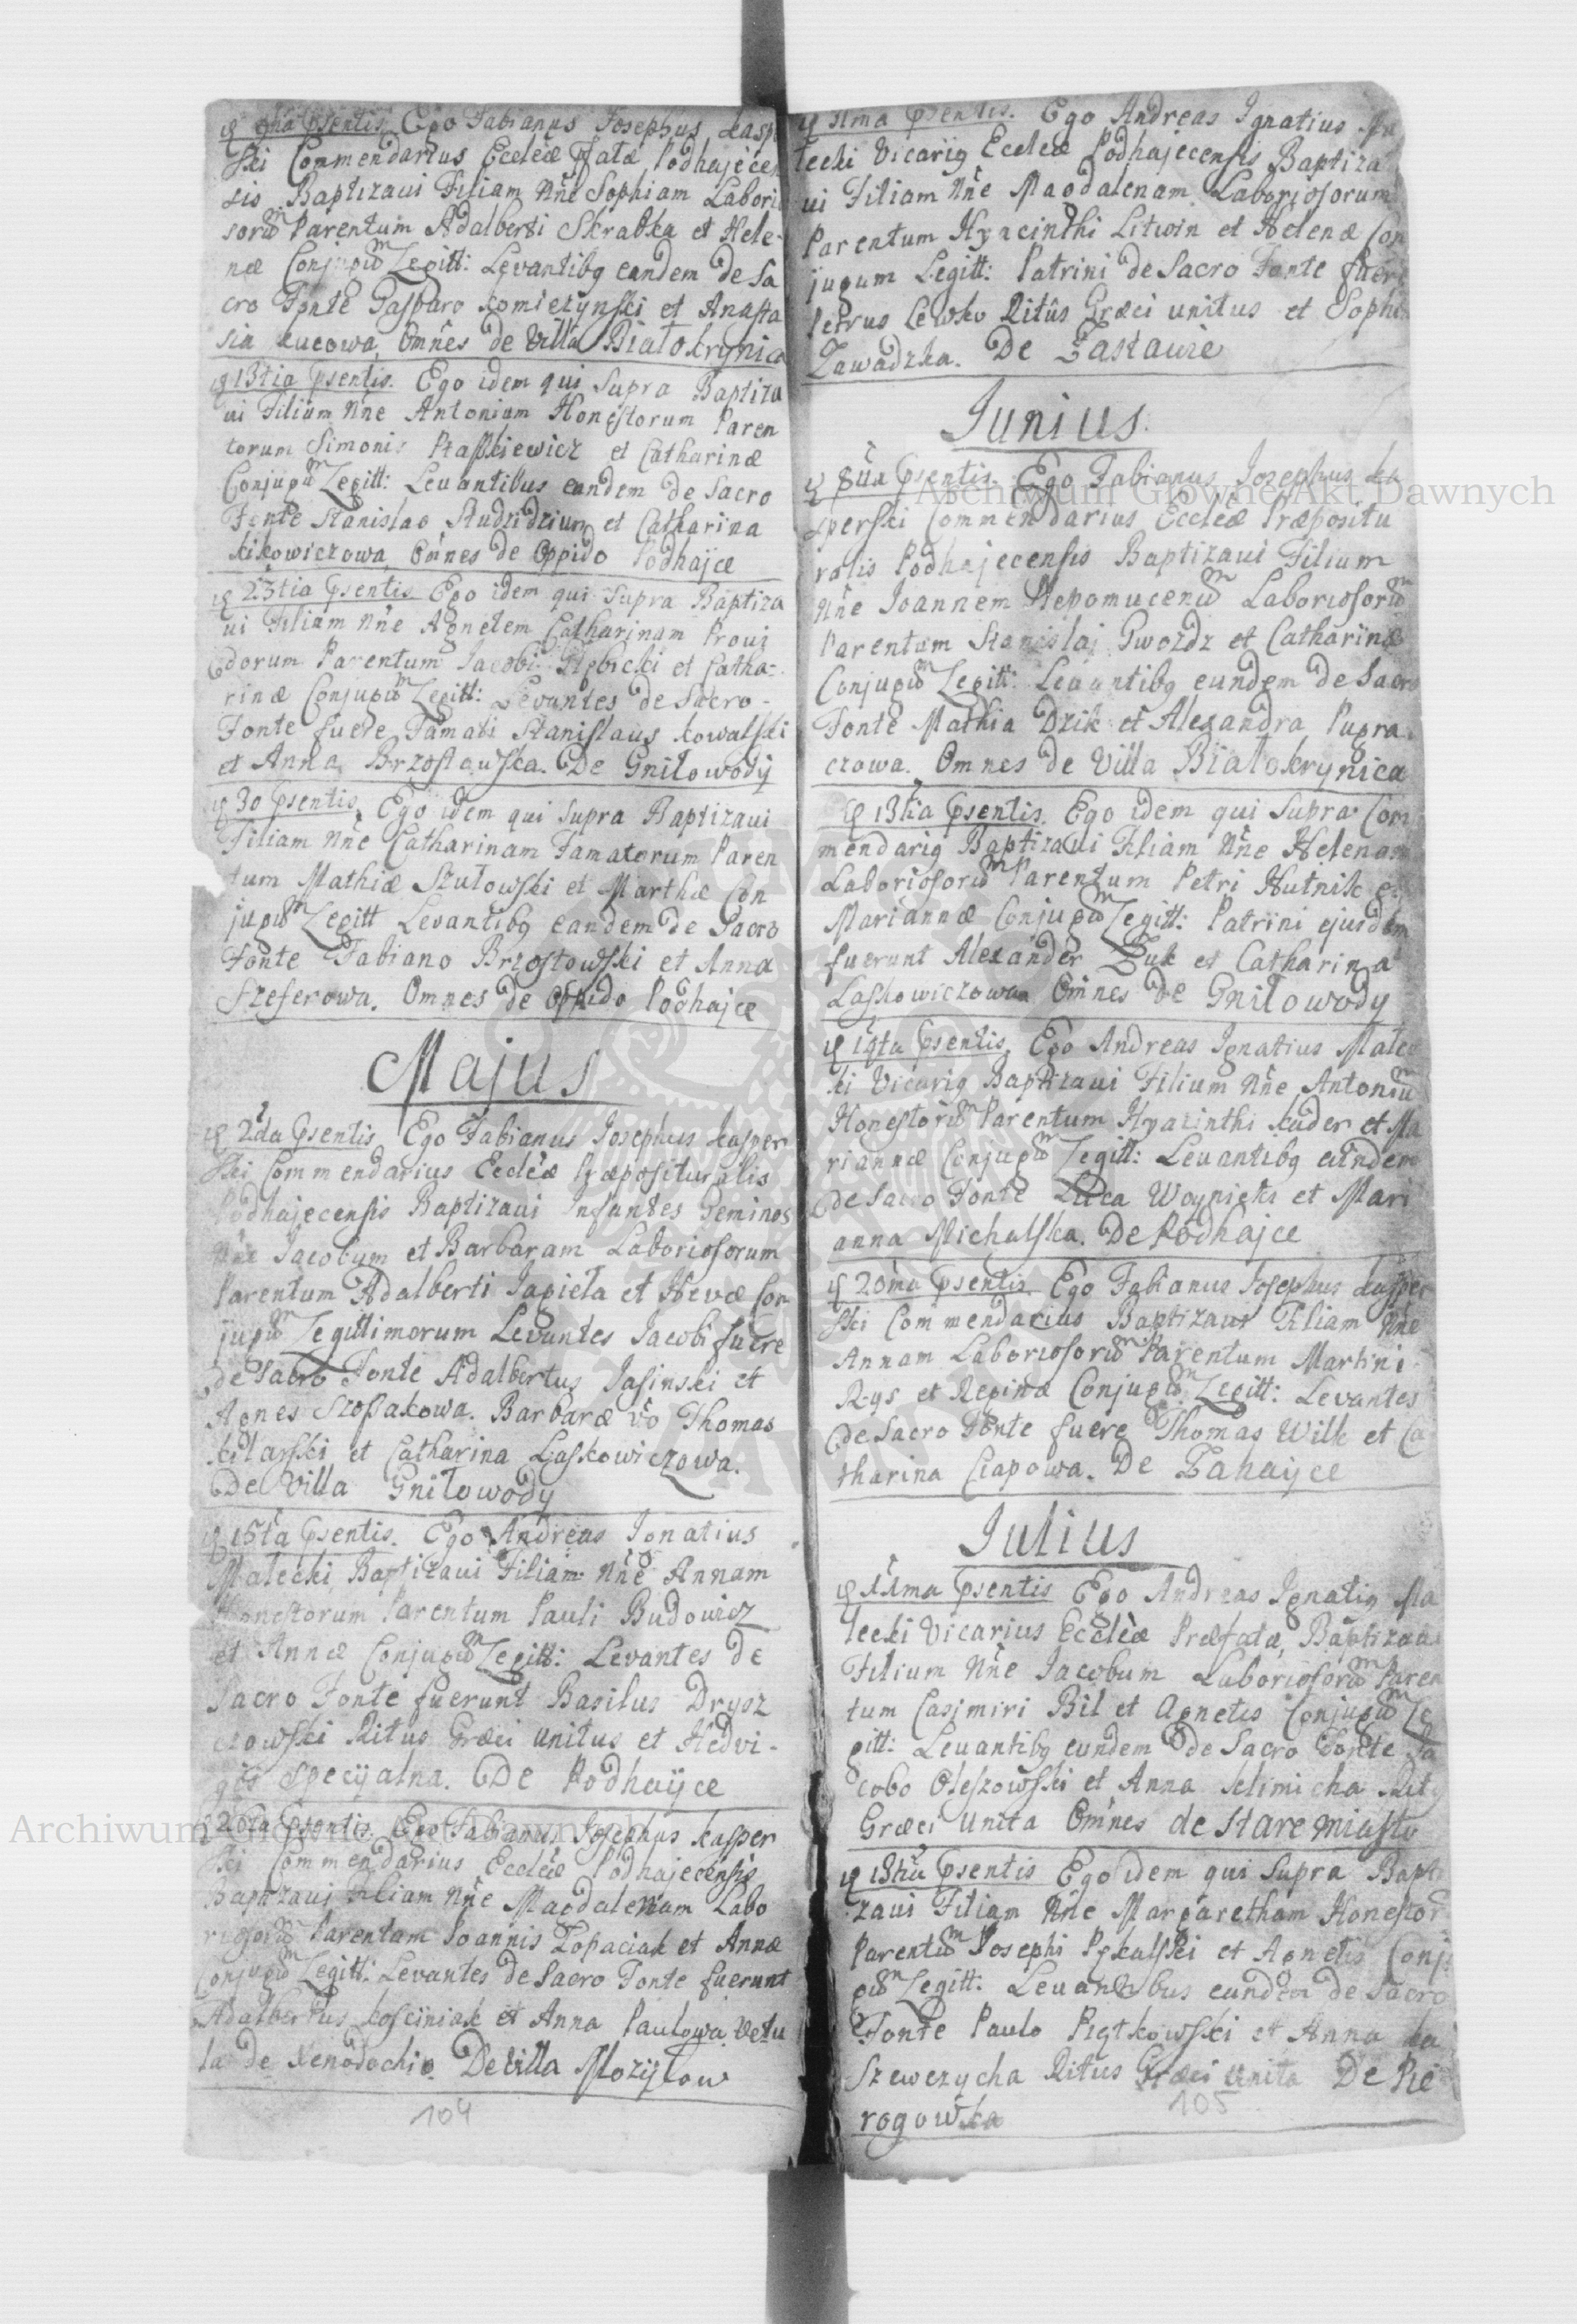 9na Psentis. Ego Fabianus Josephus Kasp
ski Commendarius Eccleæ Pfatæ Podhajecen
sis Baptizavi Filiam Nñe Sophiam Laborio
sorũ Parentum Adalberti Skrabka et Hele-
næ Conjugũ Legitt: Levantibq eandem de Sa
cro Fonte Gasparo Komiczynski et Anasta
sia Kucowa, Omñes de Villa Białokrynica
13tia Psentis. Ego idem qui Supra Baptiza
ui Filium Nñe Antonium Honestorum Paren
torum Simonis Ptaszkiewicz et Catharinæ
Conjugũ Legitt: Levantibus eundem de Sacro
Fonte Stanislao Studzidzium et Catharina
Kikowiczowa, Omñes de Oppido Podhajce
23tia Psentis Ego idem qui Supra Baptiza
ui Filiam Nñe Agnetem Catharinam Provi
dorum Parentum Jacobi Stębicki et Catha-
rinæ Conjugũ Legitt: Levantes de Sacro-
Fonte fuere Famati Stanislaus Kowalski
et Anna Brzostowska. De Gniłowody
30 Psentis. Ego idem qui Supra Baptizaui
Filiam Nñe Catharinam Famatorum Paren
tum Mathiæ Szułowski et Marthæ Con
jugũ Legitt Levantibq eandem de Sacro
Fonte Fabiano Brzostowski et Anna
Szeferowa. Omnes de Oppido Podhajce
Majus
2da Psentis Ego Fabianus Josephus Kasper
ski Commendarius Eccleæ Præposituralis
Podhajecensis Baptizaui Infantes Geminos
Nñe Jacobum et Barbaram Laboriosorum
Parentum Adalberti Japieła et Hevæ Con
jugũ Legittimorum Levantes Jacobi fuere
de Sacro Fonte Adalbertus Jasinski et
Agnes Szosakowa. Barbaræ vo Thomas
Kilarski et Catharina Laskowiczowa.
De Villa Gniłowody
15ta Psentis. Ego Andreas Ignatius
Małecki Baptizaui Filiam Nñe Annam
Honestorum Parentum Pauli Budowicz
et Annæ Conjugũ Legitt: Levantes de
Sacro Fonte fuerunt Basilus Drysz
czowski Ritus Græci Unitus et Hedvi-
gis Specyalna. De Podhayce
20ta Psentis Ego Fabianus Josephus Kasper
ski Commendarius Eccleæ Podhajecensis
Baptizaui Filiam Nñe Magdalenam Labo
riosorũ Parentum Joannis Łopaciak et Annæ
Conjugũ Legitt: Levantes de Sacro Fonte fuerunt
Adalbertus Kosciniak et Anna Paulowa Vetu
la de Xenodochio. De Villa Mozyłow
104
11ma Psentis. Ego Andreas Ignatius Ma
łecki Vicariq Eccleæ Podhajecensis Baptiza
ui Filiam Nñe Magdalenam Laboriosorum
Parentum Hyacinthi Litwin et Helenæ Con
jugum Legitt: Patrini de Sacro Fonte fuere
Petrus Lewko Ritûs Græci unitus et Sophi
Zawadzka. De Zastawie
Junius.
8ua Psentis. Ego Fabianus Josephus Ka
sperski Commendarius Eccleæ Præpositu
ralis Podhajecensis Baptizaui Filium
Nñe Joannem Nepomucenũ Laboriosorũ
Parentum Stanislai Gwozdz et Catharinæ
Conjugũ Legitt: Levantibq eundem de Sacro
Fonte Mathia Dzik et Alexandra Pugra
czowa. Omnes de Villa Białokrynica
13tia Psentis. Ego idem qui Supra Com
mendariq Baptizaui Filiam Nñe Helenam
Laboriosorũ Parentum Petri Hutnik et
Mariannæ Conjugũ Legitt: Patrini ejusdem
fuerunt Alexander Żuk et Catharina
Laskowiczowa Omñes de Gniłowody
19ta Psentis. Ego Andreas Ignatius Małec
ki Vicariq Baptizaui Filium Nñe Antoniũ
Honestorũ Parentum Hyacinthi Kuder et Ma
riannæ Conjugũ Legitt: Levantibq eundem
de Sacro Fonte Luca Woynicki et Mari
anna Michalska. De Podhajce
20ma Psentis. Ego Fabianus Josephus Kasper
ski Commendarius Baptizaui Filiam Nñe
Annam Laboriosorũ Parentum Martini
Rys et Reginæ Conjugũ Legitt: Levantes
de Sacro Fonte fuere Thomas Wilk et Ca
tharina Czapowa. De Zahajce
Julius
11ma Psentis Ego Andreas Ignatiq Ma
łecki Vicarius Eccleæ Præfatæ, Baptizaui
Filium Nñe Jacobum Laboriosorũ Paren
tum Casimiri Bil et Agnetis Conjugũ Le
gitt: Levantibq eundem de Sacro Fonte Ja
cobo Oleszowski et Anna Klimicha Rit
Græci Unita Omñes de Staremiasto
18tũ Psentis Ego idem qui Supra Bapti
zaui Filiam Nñe Margaretham Honestor
Parentũ Josephi Pękalski et Agnetis Conju
gũ Legitt: Levantibus eundem de Sacro
Fonte Paulo Piętkowski et Anna Ka
Szewczycha Ritus Græci Unita De Pie
rogowka
105
Archiwum Główne Akt Dawnych
Archiwum Główne Akt Dawnych